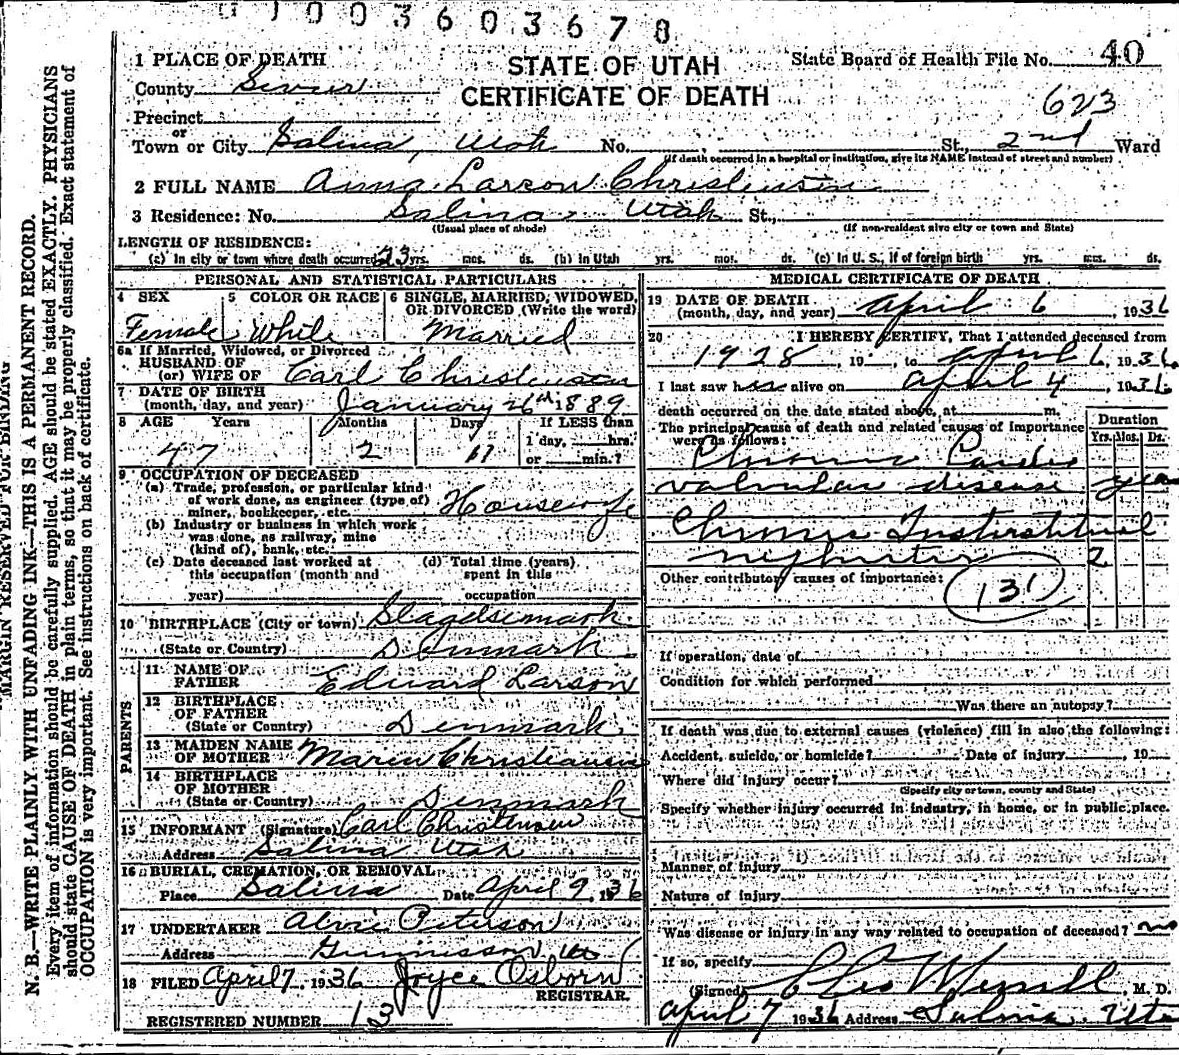 1003603678
1 PLACE OF DEATH
STATE OF UTAH
State Board of Health File No. 40
County Sevier
CERTIFICATE OF DEATH
623
Precinct
or
Town or City Salina, Utah No. St., 2nd Ward
(If death occurred in a hospital or institution, give its NAME instead of street and number)
2 FULL NAME Anna Larson Christensen
3 Residence: No. Salina, Utah St.,
(Usual place of abode) (If non-resident give city or town and State)
LENGTH OF RESIDENCE:
(c) In city or town where death occurred 23 yrs. mos. ds. (b) In Utah yrs. mos. ds. (c) In U. S., If of foreign birth yrs. mos. ds.
PERSONAL AND STATISTICAL PARTICULARS
4 SEX
Female
5 COLOR OR RACE
White
6 SINGLE, MARRIED, WIDOWED,
OR DIVORCED (Write the word)
Married
6a If Married, Widowed, or Divorced
HUSBAND OF
(or) WIFE OF Carl Christensen
7 DATE OF BIRTH
(month, day, and year) January 26th 1889
8 AGE Years Months Days If LESS than
1 day, hrs.
or min.?
47 2 11
9 OCCUPATION OF DECEASED
(a) Trade, profession, or particular kind
of work done, as engineer (type of)
miner, bookkeeper, etc. Housewife
(b) Industry or business in which work
was done, as railway, mine
(kind of), bank, etc.
(c) Date deceased last worked at
this occupation (month and
year)
(d) Total time (years)
spent in this
occupation
10 BIRTHPLACE (City or town)
(State or Country) Denmark
PARENTS
11 NAME OF
FATHER Edward Larson
12 BIRTHPLACE
OF FATHER
(State or Country) Denmark
13 MAIDEN NAME
OF MOTHER Maren Christiansen
14 BIRTHPLACE
OF MOTHER
(State or Country) Denmark
15 INFORMANT (Signature) Carl Christensen
Address Salina Utah
16 BURIAL, CREMATION, OR REMOVAL
Place Salina Date April 9, 1936
17 UNDERTAKER Peterson
Address Gunnison Ut
18 FILED April 7, 1936 Joyce Osborn
REGISTRAR.
REGISTERED NUMBER 13
MEDICAL CERTIFICATE OF DEATH
19 DATE OF DEATH
(month, day, and year) April 6, 1936
20 I HEREBY CERTIFY, That I attended deceased from
1928, 19 to April 6, 1936.
I last saw her alive on April 4, 1936
death occurred on the date stated above, at m.
The principal cause of death and related causes of importance
were as follows:
Duration
Yrs. Mos. Ds.
Chronic Cardio
valvular disease years
Chronic Interstitial
nephritis 2
Other contributory causes of importance:
131
If operation, date of
Condition for which performed
Was there an autopsy?
If death was due to external causes (violence) fill in also the following:
Accident, suicide, or homicide? Date of injury, 19
Where did injury occur?
(Specify city or town, county and State)
Specify whether injury occurred in industry, in home, or in public place.
Manner of injury
Nature of injury
Was disease or injury in any way related to occupation of deceased? no
If so, specify
(Signed) Merrill, M. D.
April 7 1936 Address Salina, Utah
MARGIN RESERVED FOR BINDING
N. B.—WRITE PLAINLY WITH UNFADING INK—THIS IS A PERMANENT RECORD.
Every item of information should be carefully supplied. AGE should be stated EXACTLY. PHYSICIANS
should state CAUSE OF DEATH in plain terms, so that it may be properly classified. Exact statement of
OCCUPATION is very important. See instructions on back of certificate.